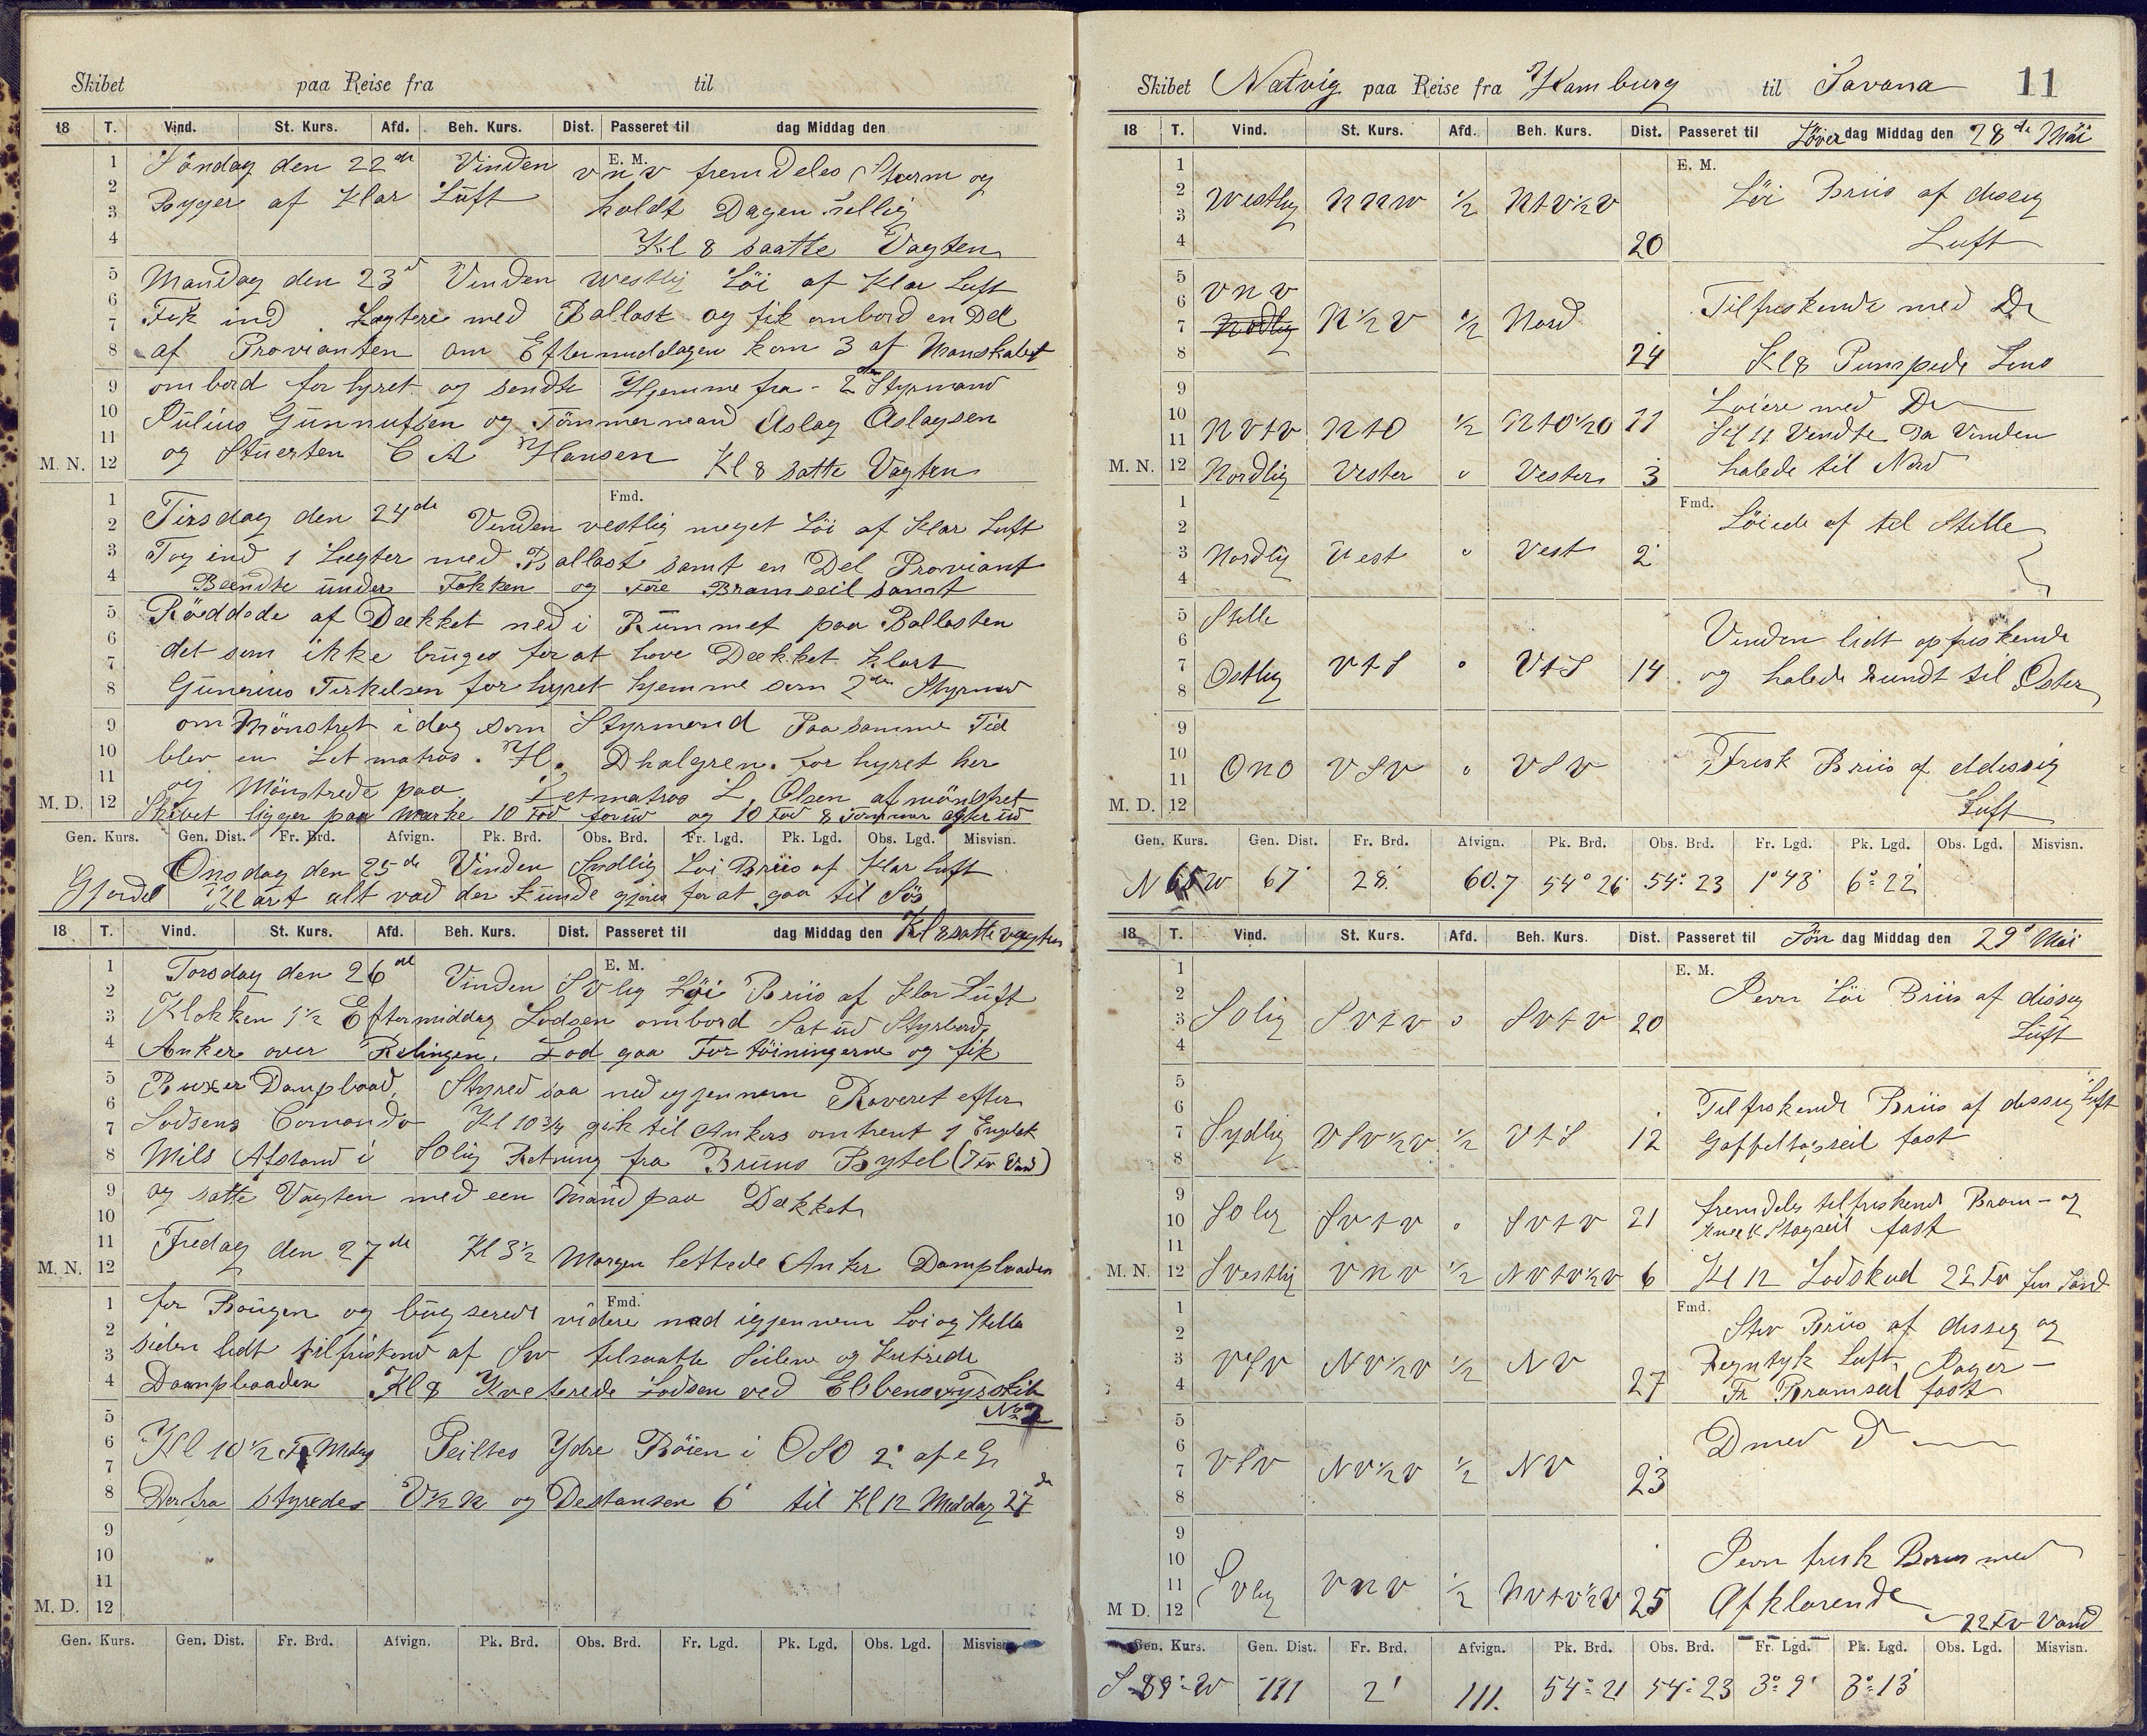 Skibet paa Reise fra til
18 T. Vind. St. Kurs. Afd. Beh. Kurs. Dist. Passeret til dag Middag den
E. M.
Söndag den 22de Vinden VNV fremdeles Storm og
Byger af Klar Luft holdt Dagen hellig
Kl 8 saatte Vagten
Mandag den 23d Vinden Westlig Löi af Klar Luft
Fik ind Lægtere med Ballast og fik ombord en Del
af Provianten om Eftermiddagen kom 3 af Manskabet
ombord forhyret og sendte Hjemme fra - 2den Styrmand
Julius Gunnufsen og Tömmermand Aslag Aslagsen
og Stuerten C A Hansen Kl 8 satte Vagten
M. N.
Fmd.
Tirsdag den 24de Vinden vestlig meget Löi af Klar Luft
Tog ind 1 Lægter med Ballast samt en Del Proviant
Beendte under Fokken og Fore Bramseil samt
Röddede af Dækket ned i Rummet paa Ballasten
det som ikke bruges for at have Dækket klart
Gunerius Terkelsen forhyret hjemme som 2den Styrmd
om Mönstret i dag som Styrmand Paa samme Tid
blev en Letmatros. H. Dhalgren. forhyret her
og Mönstrede paa Letmatros L. Olsen afmönstret
M. D. Skibet ligger paa Mærke 10 Fod forud og 10 Fod 8 Tommer agterud
Gen. Kurs. Gen. Dist. Fr. Brd. Afvign. Pk. Brd. Obs. Brd. Fr. Lgd. Pk. Lgd. Obs. Lgd. Misvisn.
Onsdag den 25de Vinden Sydlig Löi Briis af Klar Luft
Gjorde Klart alt vad der kunde gjöres for at gaa til Sös
18 T. Vind. St. Kurs. Afd. Beh. Kurs. Dist. Passeret til dag Middag den Kl 8 satte vagten
E. M.
Torsdag den 26de Vinden SVlig Löi Briis af Klar Luft
Klokken 1½ Eftermiddag Lodsen ombord Sat ud Styrbord
Anker over Relingen. Lod gaa Fortöiningerne og fik
Buxer Dampbaad, Styred saa ned igjennem Raveret efter
Lodsens Comando Kl 10¾ gik til Ankers omtrent 1 Engelsk
Mils Afstand i SOlig Retning fra Bruns Bytel (7 Fv Vand)
og satte Vagten med een Mand paa Dækket
M. N. Fredag den 27de Kl 3½ Morgen lettede Anker Dampbaaden
Fmd.
for Bougen og bugserede videre ned igjennem Löi og Stille
siden lidt tilfriskend af SW tilsaatte Seilene og kvitrede
Dampbaaden Kl 8 Kviterede Lodsen ved Elbens Fyrskib
No 2
Kl 10½ F. Middag Peiltes Ydre Böien i OSO 2' af
Derfra styredes V½N og Destansen 6' til Kl 12 Middag 27de
M. D.
Gen. Kurs. Gen. Dist. Fr. Brd. Afvign. Pk. Brd. Obs. Brd. Fr. Lgd. Pk. Lgd. Obs. Lgd. Misvisn.
Skibet Natvig paa Reise fra Hamburg til Savana 11
18 T. Vind. St. Kurs. Afd. Beh. Kurs. Dist. Passeret til Löver dag Middag den 28de Mai
E. M.
Westlig NNW ½ NtV½V 20 Löi Briis af dissig
Luft
VNV
Nordlig N½V ½ Nord 24 Tilfriskende med Do
Kl 8 Pumpede Lens
NVtV NtO ½ NtO½O 11 Loiere med Do
Kl 11 Vendte da Vinden
M. N. Nordlig Vester o Vester 3 halede til Nord
Fmd.
Nordlig Vest o Vest 2 Löiede af til Stille
Stille
Ostlig VtS o VtS 14 Vinden lidt opfriskende
og halede rundt til Oster
ONO VSV o VSV Frisk Briis af dissig
M. D. Luft
Gen. Kurs. Gen. Dist. Fr. Brd. Afvign. Pk. Brd. Obs. Brd. Fr. Lgd. Pk. Lgd. Obs. Lgd. Misvisn.
N 65 W 67' 28' 60.7 54° 26 54° 23 1° 43' 6° 22'
18 T. Vind. St. Kurs. Afd. Beh. Kurs. Dist. Passeret til Sön dag Middag den 29d Mai
E. M.
SOlig SVtV o SVtV 20 Jevn Löi Briis af dissig
Luft
Sydlig VSV½V ½ VtS 12 Tilfriskende Briis af dissig Luft
Gaffeltopseil fast
SOlig SVtV o SVtV 21 fremdeles tilfriskende Bram- og
Stagseil fast
M. N. SVestlig VNV ½ NVtV½V 6 Kl 12 Lodskud 22 Fv fin Sand
Fmd.
VSV NV½V ½ NV 27 Stiv Briis af dissig og
Regntyk Luft,
Fr Bramseil fast
VSV NV½V ½ NV 23 D med D
SVlig VNV ½ NVtV½V 25 Jevn frisk Briis med
Afklarende
M D. 22 Fv Vand
Gen. Kurs. Gen. Dist. Fr. Brd. Afvign. Pk. Brd. Obs. Brd. Fr. Lgd. Pk. Lgd. Obs. Lgd. Misvisn.
S 89° W 111 2' 111. 54° 21 54° 23 3° 9' 3° 13'